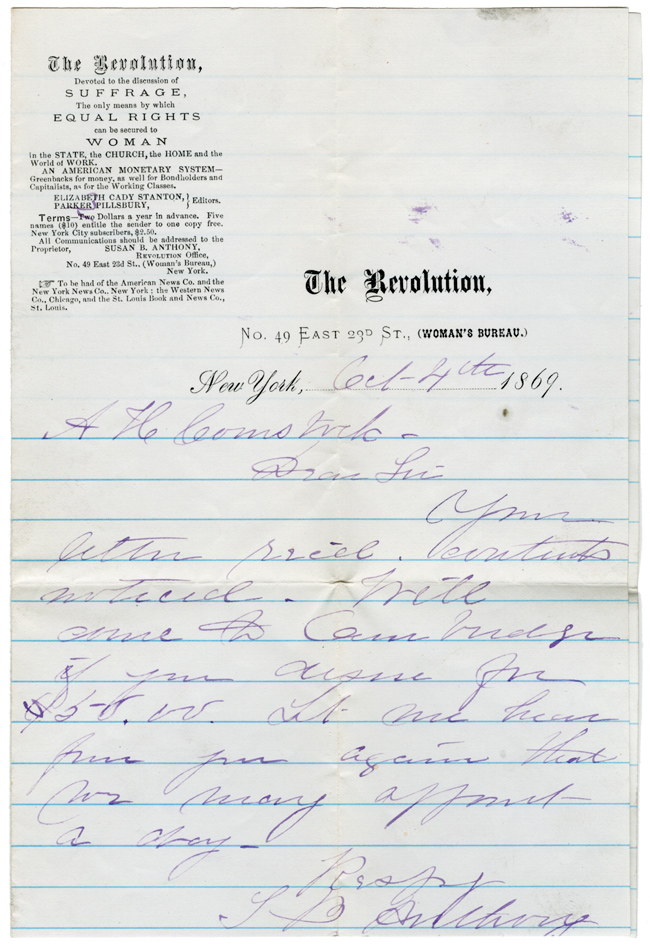 The Revolution,
Devoted to the discussion of
SUFFRAGE,
The only means by which
EQUAL RIGHTS
can be secured to
WOMAN
in the STATE, the CHURCH, the HOME and the
World of WORK.
AN AMERICAN MONETARY SYSTEM—
Greenbacks for money, as well for Bondholders and
Capitalists, as for the Working Classes.
ELIZABETH CADY STANTON, } Editors.
PARKER PILLSBURY,
Terms—Two Dollars a year in advance. Five
names ($10) entitle the sender to one copy free.
New York City subscribers, $2.50.
All Communications should be addressed to the
Proprietor, SUSAN B. ANTHONY,
REVOLUTION Office,
No. 49 East 23d St., (Woman's Bureau,)
New York.
☞ To be had of the American News Co. and the
New York News Co., New York; the Western News
Co., Chicago, and the St. Louis Book and News Co.,
St. Louis.
The Revolution,
No. 49 EAST 23D ST., (WOMAN'S BUREAU.)
New York, Oct - 4th 1869.
A H Comstock -
Dear Sir
Your
letter recied. contents
noticed - Will
come to Cambridge
if you desire for
$50.00. Let me hear
from you again that
we may appoint
a day -
Respy
S B Anthony